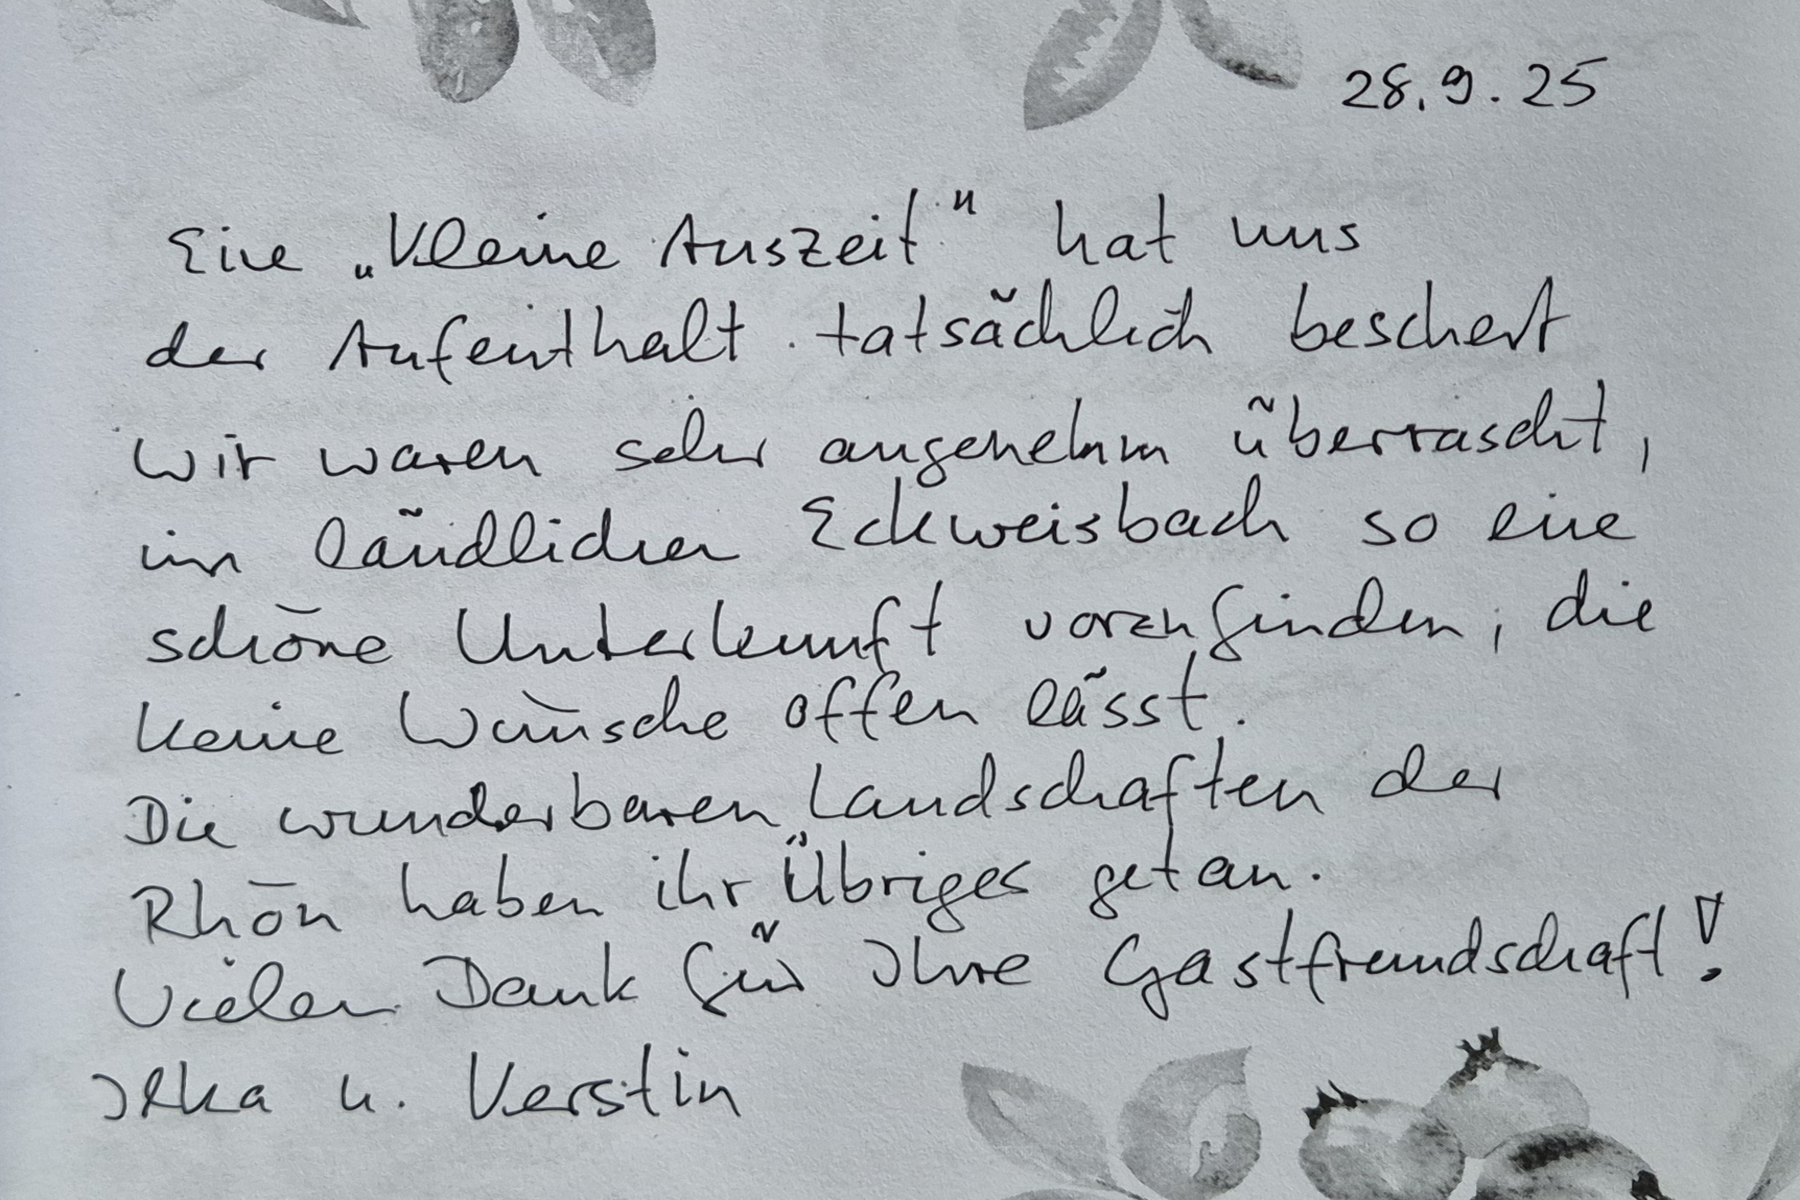 28.9.25
Eine „Kleine Auszeit" hat uns
der Aufenthalt tatsächlich beschert
Wir waren sehr angenehm überrascht,
im ländlichen Eckweisbach so eine
schöne Unterkunft vorzufinden, die
keine Wünsche offen lässt.
Die wunderbaren Landschaften der
Rhön haben ihr Übriges getan.
Vielen Dank für Ihre Gastfreundschaft!
Ilka u. Kerstin